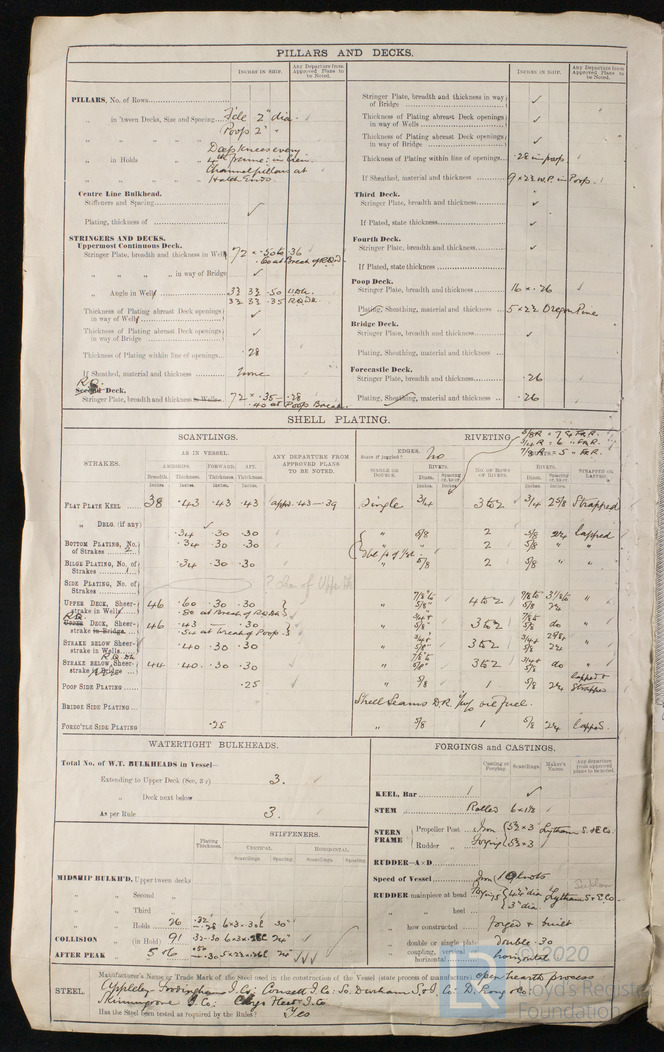 PILLARS AND DECKS.
INCHES IN SHIP.
Any Departure from Approved Plans to be Noted.
PILLARS, No. of Rows
„ in 'tween Decks, Size and Spacing F'cle 2" dia.
Poops 2" "
Deep knees every
„ in Holds „ „ 4th frame: in lieu.
Channel pillars at
Hatch Ends.
Centre Line Bulkhead.
Stiffeners and Spacing
Plating, thickness of
STRINGERS AND DECKS.
Uppermost Continuous Deck.
Stringer Plate, breadth and thickness in Wells 72 × .50 to .36
.60 at Break of R.Q.D.
„ „ „ in way of Bridge
„ Angle in Wells 3½ 3½ .50 U.Dk.
3½ 3½ .35 R.Q.Dk.
Thickness of Plating abreast Deck openings in way of Wells
Thickness of Plating abreast Deck openings in way of Bridge
Thickness of Plating within line of openings .28
If Sheathed, material and thickness none
R.Q.
Second Deck.
Stringer Plate, breadth and thickness in Wells 72 × .35 – .28
.40 at Poop Break.
INCHES IN SHIP.
Any Departure from Approved Plans to be Noted.
Stringer Plate, breadth and thickness in way of Bridge
Thickness of Plating abreast Deck openings in way of Wells
Thickness of Plating abreast Deck openings in way of Bridge
Thickness of Plating within line of openings .28 in poop
If Sheathed, material and thickness 9 × 2½ W.P. in Poop.
Third Deck.
Stringer Plate, breadth and thickness
If Plated, state thickness
Fourth Deck.
Stringer Plate, breadth and thickness
If Plated, state thickness
Poop Deck.
Stringer Plate, breadth and thickness 16 × .26
Plating, Sheathing, material and thickness 5 × 2½ Oregon Pine
Bridge Deck.
Stringer Plate, breadth and thickness
Plating, Sheathing, material and thickness
Forecastle Deck.
Stringer Plate, breadth and thickness .26
Plating, Sheathing, material and thickness .26
SHELL PLATING.
SCANTLINGS.
RIVETING
STRAKES.
AS IN VESSEL.
AMIDSHIPS.
FORWARD.
AFT.
Breadth.
Thickness.
Thickness.
Thickness.
Inches.
Inches.
Inches.
Inches.
ANY DEPARTURE FROM APPROVED PLANS TO BE NOTED.
EDGES.
State if joggled? No
SINGLE OR DOUBLE.
RIVETS.
Diam.
Spacing cr. to cr.
NO. OF ROWS OF RIVETS.
RIVETS.
Diam.
Spacing cr. to cr.
STRAPPED OR LAPPED.
FLAT PLATE KEEL 38 .43 .43 .43 appd. .43 – .39 Single 3/4 3 to 2 3/4 2 5/8 Strapped
„ DBLG. (if any)
.34 .30 .30 „ 5/8 2 5/8 2¼ lapped
BOTTOM PLATING, No. of Strakes 2 .34 .30 .30 2 5/8 „ „
BILGE PLATING, No. of Strakes 1 .34 .30 .30 „ 5/8 2 5/8 „ „
SIDE PLATING, No. of Strakes
UPPER DECK, Sheerstrake in Wells 46 .60 .30 .30 „ 4 to 2
.80 at Break of R.Q.Dk.
R.Q.
UPPER DECK, Sheerstrake in Bridge 46 .43 .30 „ 3 to 2 do „
.54 at break of Poop.
STRAKE BELOW Sheerstrake in Wells .40 .30 .30 „ 3 to 2 „
R.Q.Dk.
STRAKE BELOW Sheerstrake in Bridge 44 .40 .30 .30 „ 3 to 2 do „
POOP SIDE PLATING .25 „ 5/8 1 5/8 2¼ lapped & Strapped
BRIDGE SIDE PLATING Shell Seams D.R. oil fuel.
FORE'CTLE SIDE PLATING .25 „ 5/8 1 5/8 2¼ lapped.
WATERTIGHT BULKHEADS.
Total No. of W.T. BULKHEADS in Vessel—
Extending to Upper Deck (Sec. 3 c) 3.
„ Deck next below
As per Rule 3.
Plating Thickness.
STIFFENERS.
VERTICAL.
HORIZONTAL.
Scantlings.
Spacing.
Scantlings.
Spacing.
MIDSHIP BULKH'D, Upper tween decks
„ „ Second „
„ „ Third „
„ „ Holds 26 30"
COLLISION „ (in Hold) 91 .32-.30 24"
AFTER PEAK „ „ 24"
FORGINGS and CASTINGS.
Casting or Forging.
Scantlings.
Maker's Name.
Any departure from approved plans to be noted.
KEEL, Bar
STEM Rolled 6 × 1⅜
STERN FRAME Propeller Post Iron 5½ × 3 Lytham S. & E. Co.
Rudder „ Forging 5½ × 3
RUDDER—A × D
Speed of Vessel 10 knots
RUDDER mainpiece at head Forgings 4¼" dia Lytham S. & E. Co.
„ „ heel 3" dia.
„ how constructed forged & built
„ double or single plate double .30
„ coupling, vertical or horizontal horizontal
STEEL.
Manufacturer's Name or Trade Mark of the Steel used in the construction of the Vessel (state process of manufacture) open hearth process
Appleby Frodingham I. Co; Consett I. Co: So. Durham S & I. Co: D.
Skinningrove I. Co:
Has the Steel been tested as required by the Rules? Yes
LR
2020
Lloyd's Register
Foundation